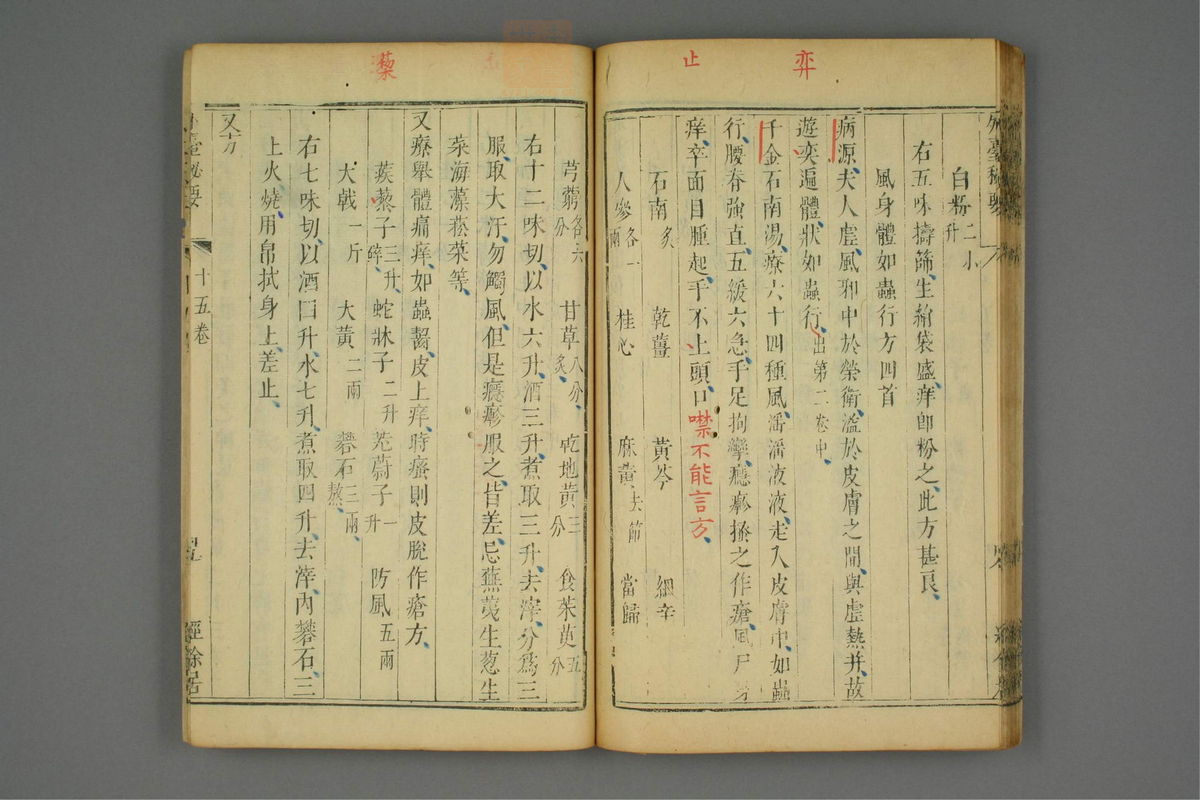 弈
止
外臺秘要
白粉二小升
右五味擣篩生絹袋盛痒即粉之此方甚良
風身體如蟲行方四首
病源夫人虛風邪中於榮衛溢於皮膚之間與虛熱并故
遊奕遍體狀如蟲行出第二卷中
千金石南湯療六十四種風淫淫液液走入皮膚中如蟲
行腰脊強直五緩六急手足拘攣癮疹搔之作瘡風尸身
痒卒面目腫起手不上頭口噤不能言方
石南炙 乾薑 黃芩 細辛
人參各一兩 桂心 麻黃去節 當歸
蘗
芎藭各六分 甘草八分炙 乾地黃三分 食茱萸五分
右十二味切以水六升酒三升煮取三升去滓分為三
服取大汗勿觸風但是癮疹服之皆差忌蕪荑生葱生
菜海藻菘菜等
又療舉體痛痒如蟲齧皮上痒時瘙則皮脫作瘡方
蒺蔾子三升碎 蛇牀子二升 茺蔚子一升 防風五兩
大戟一斤 大黃二兩 礬石三兩熬
右七味切以酒四升水七升煮取四升去滓內礬石三
上火燒用帛拭身上差止
又方
外臺秘要
十五卷
經餘居